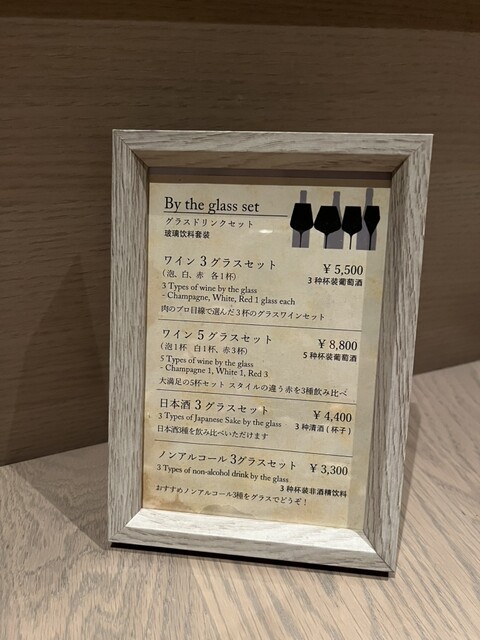 By the glass set
グラスドリンクセット
玻璃饮料套装
ワイン 3 グラスセット ¥ 5,500
（泡、白、赤 各1杯） 3 种杯装葡萄酒
3 Types of wine by the glass
- Champagne, White, Red 1 glass each
肉のプロ目線で選んだ3杯のグラスワインセット
ワイン 5 グラスセット ¥ 8,800
（泡1杯 白1杯、赤3杯） 5 种杯装葡萄酒
5 Types of wine by the glass
- Champagne 1, White 1, Red 3
大満足の5杯セット スタイルの違う赤を3種飲み比べ
日本酒 3 グラスセット ¥ 4,400
3 Types of Japanese Sake by the glass 3 种清酒 ( 杯子 )
日本酒3種を飲み比べいただけます
ノンアルコール 3グラスセット ¥ 3,300
3 Types of non-alcohol drink by the glass
3 种杯装非酒精饮料
おすすめノンアルコール3種をグラスでどうぞ！